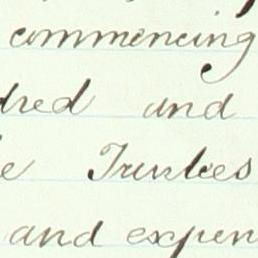 commencing
dred and
e Trustees
and expen